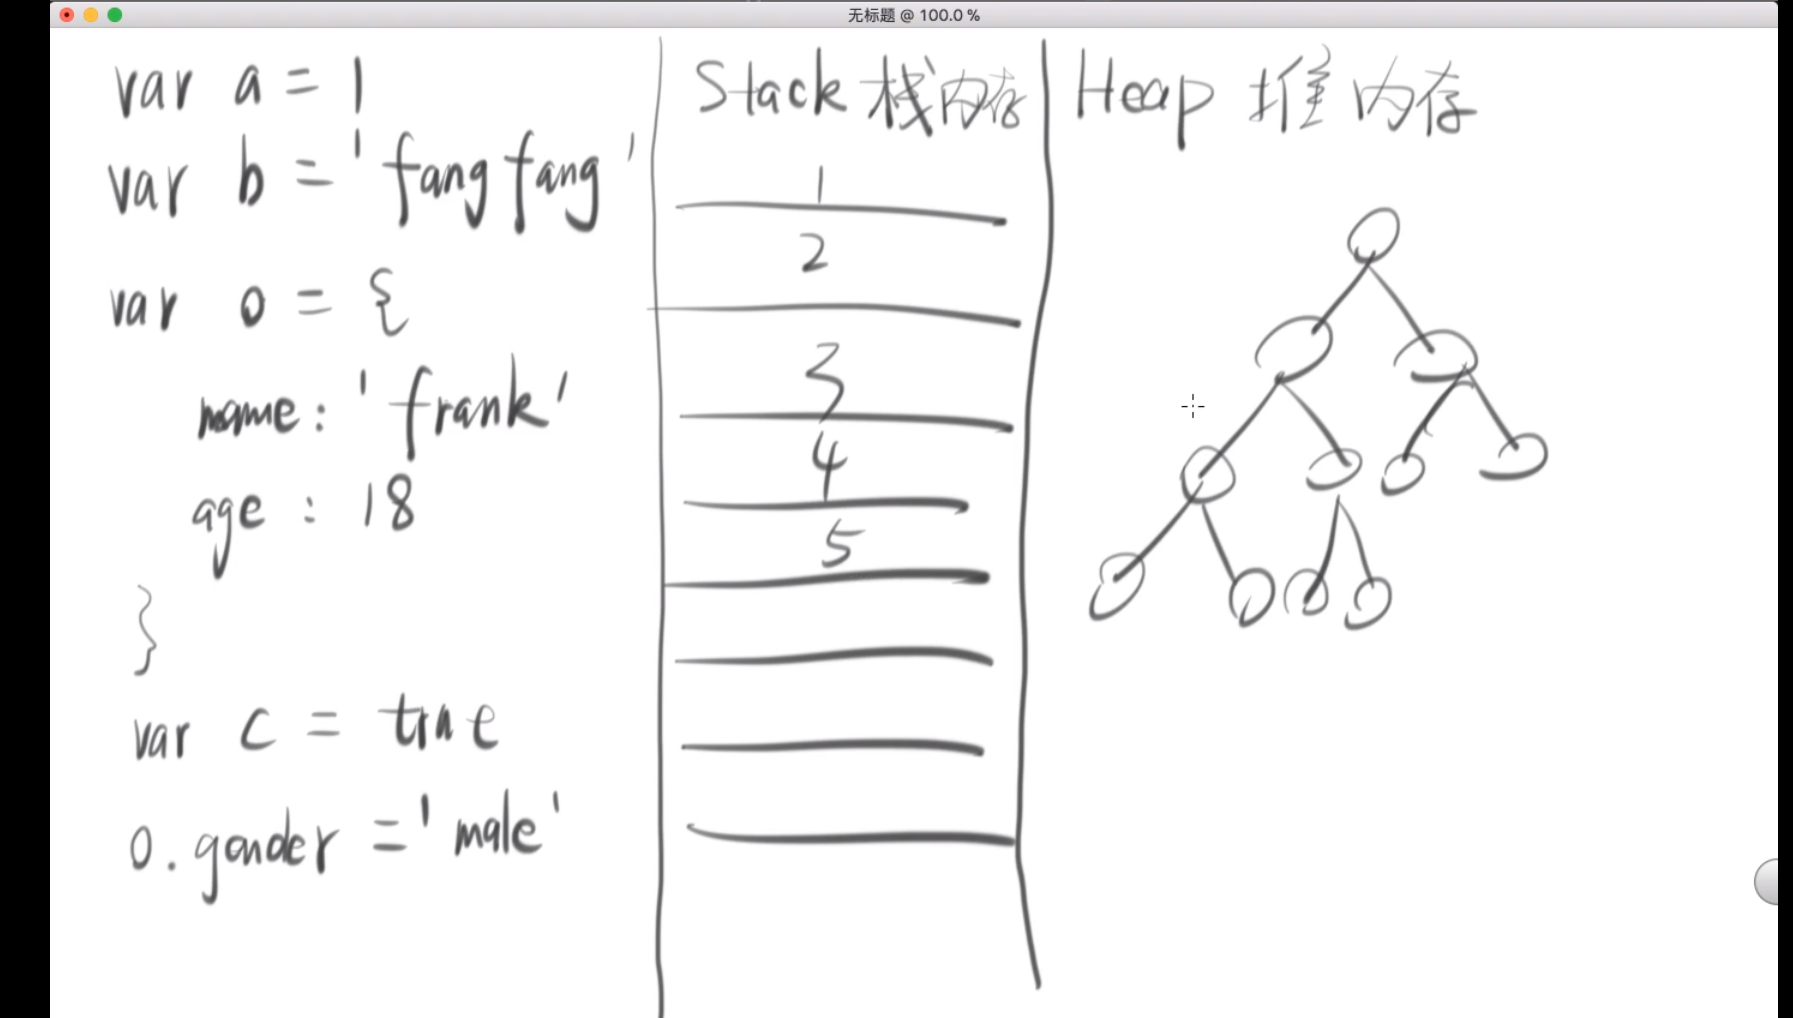 无标题 @ 100.0 %
var a = 1
var b = 'fangfang'
var o = {
name: 'frank'
age : 18
}
var c = true
o.gender = 'male'
Stack 栈内存
1
2
3
4
5
Heap 堆内存